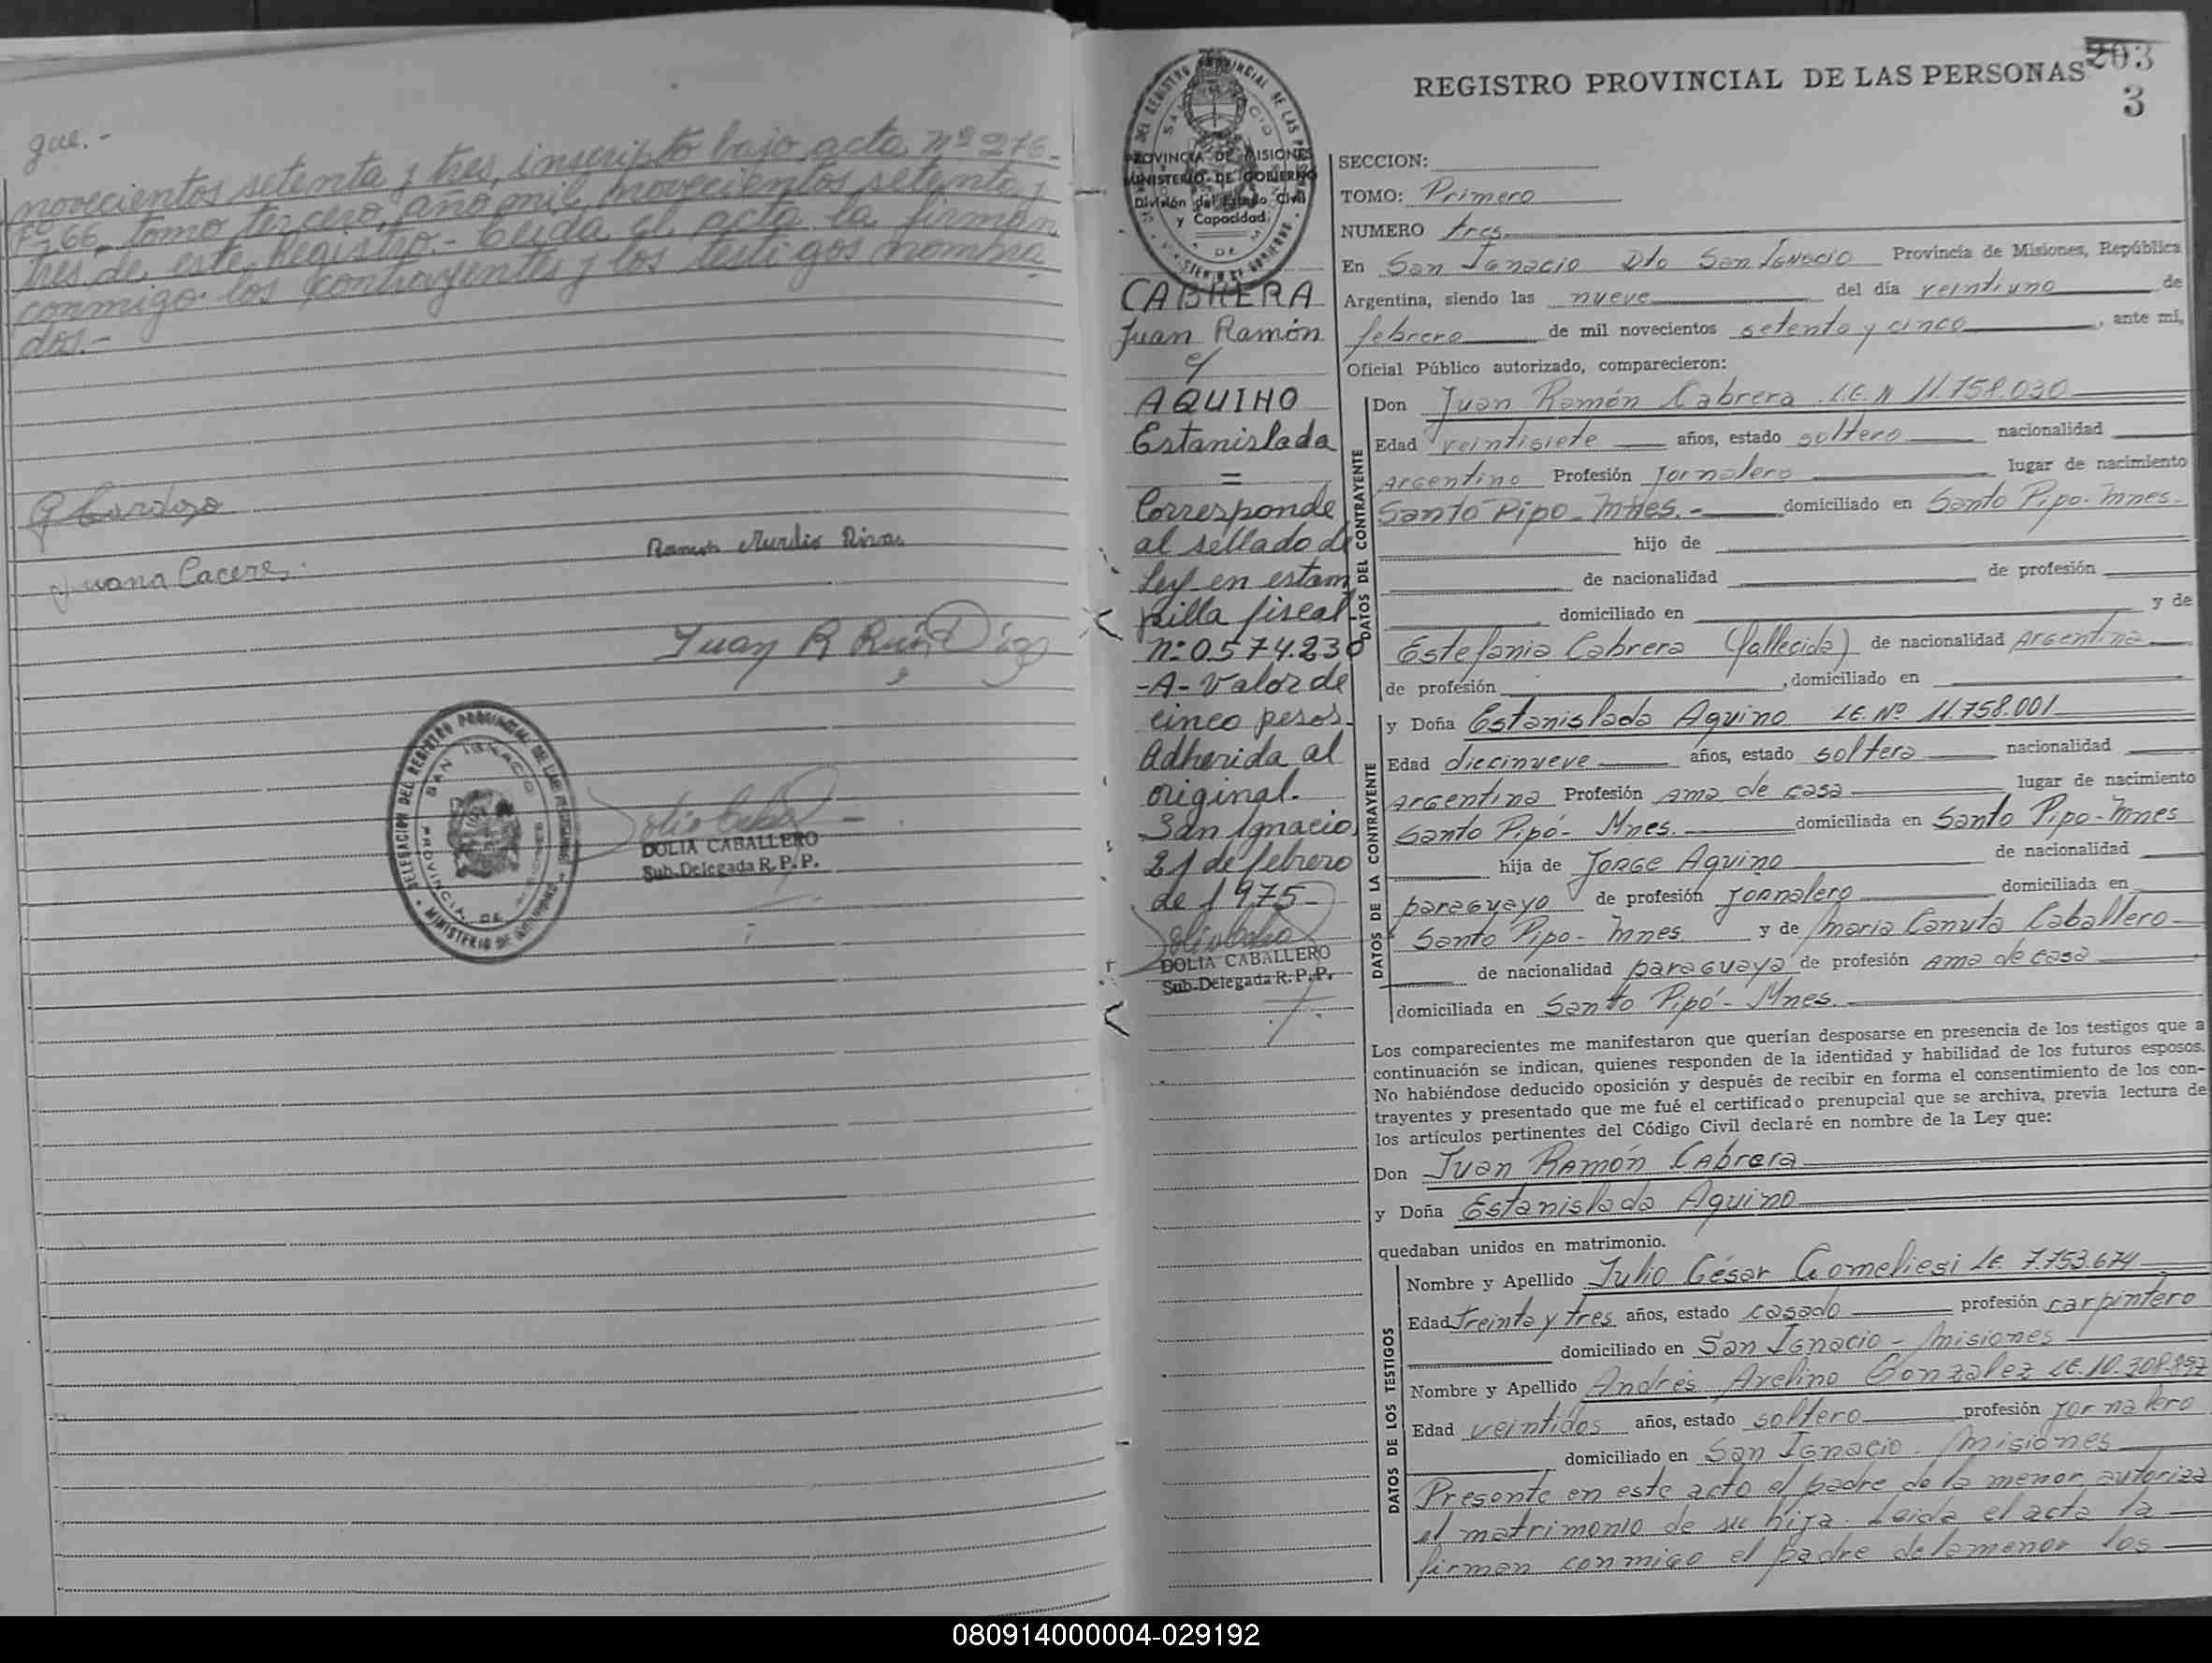 gue.-
novecientos setenta y tres, inscripto bajo acta Nº 276-
Fº 66- tomo tercero, año mil novecientos setenta y
tres de este Registro.- Leida el acta la firman
conmigo los contrayentes y los testigos nombra
dos.-
G Cardozo
Ramon Aurelio Rivas
Juana Caceres
Juan R Ruiz Diaz
DELEGACION DEL REGISTRO PROVINCIAL DE LAS PERSONAS
SAN IGNACIO
PROVINCIA DE MISIONES
MINISTERIO DE GOBIERNO
DOLIA CABALLERO
Sub-Delegada R. P. P.
203
REGISTRO PROVINCIAL DE LAS PERSONAS
3
PROVINCIA DE MISIONES
MINISTERIO DE GOBIERNO
División del Estado Civil
y Capacidad
CABRERA
Juan Ramón
y
AQUINO
Estanislada
=
Corresponde
al sellado de
Ley en estam
pilla fiscal
nº 0.574.230
-A- Valor de
cinco pesos.
Adherida al
original.
San Ignacio,
21 de febrero
de 1975-
DOLIA CABALLERO
Sub-Delegada R. P. P.
SECCION:
TOMO: Primero
NUMERO tres
En San Ignacio Dto San Ignacio Provincia de Misiones, República
Argentina, siendo las nueve del día veintiuno de
febrero de mil novecientos setenta y cinco, ante mi,
Oficial Público autorizado, comparecieron:
DATOS DEL CONTRAYENTE
Don Juan Ramón Cabrera L.E. N 11.758.030
Edad veintisiete años, estado soltero nacionalidad
Argentino Profesión Jornalero lugar de nacimiento
Santo Pipo - Mnes.- domiciliado en Santo Pipo - Mnes-
hijo de
de nacionalidad de profesión
domiciliado en y de
Estefania Cabrera (fallecida) de nacionalidad Argentina
de profesión , domiciliado en
DATOS DE LA CONTRAYENTE
y Doña Estanislada Aquino L.E. Nº 11.758.001
Edad diecinueve años, estado soltera nacionalidad
Argentina Profesión Ama de casa lugar de nacimiento
Santo Pipó - Mnes. domiciliada en Santo Pipo - Mnes
hija de Jorge Aquino de nacionalidad
paraguayo de profesión Jornalero domiciliada en
Santo Pipo - Mnes. y de Maria Canuta Caballero
de nacionalidad paraguaya de profesión Ama de casa
domiciliada en Santo Pipó - Mnes.
Los comparecientes me manifestaron que querían desposarse en presencia de los testigos que a
continuación se indican, quienes responden de la identidad y habilidad de los futuros esposos.
No habiéndose deducido oposición y después de recibir en forma el consentimiento de los con-
trayentes y presentado que me fué el certificado prenupcial que se archiva, previa lectura de
los artículos pertinentes del Código Civil declaré en nombre de la Ley que:
Don Juan Ramón Cabrera
y Doña Estanislada Aquino
quedaban unidos en matrimonio.
DATOS DE LOS TESTIGOS
Nombre y Apellido Julio César Gomeliesi L.E. 7.753.674
Edad Treinta y tres años, estado casado profesión carpintero
domiciliado en San Ignacio - Misiones
Nombre y Apellido Andrés Avelino Gonzalez L.E. 10.308.897
Edad veintidos años, estado soltero profesión jornalero
domiciliado en San Ignacio. Misiones
Presente en este acto el padre de la menor autoriza
el matrimonio de su hija. Leida el acta la
firman conmigo el padre de la menor los
080914000004-029192